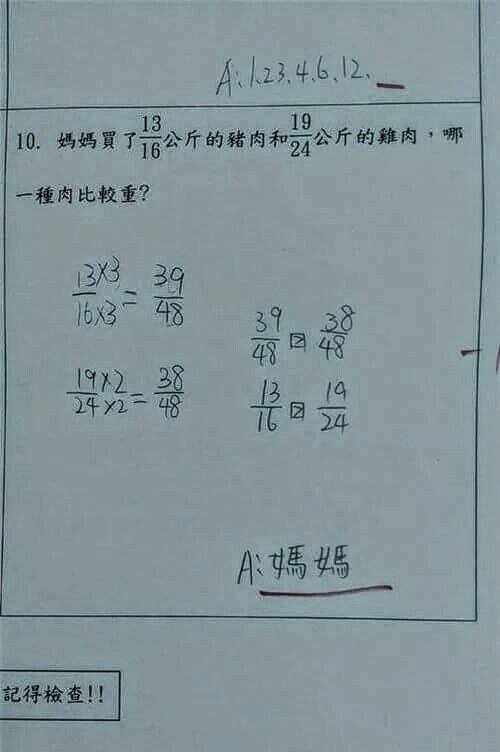 A:1.23.4.6.12.
10. 媽媽買了13/16公斤的豬肉和19/24公斤的雞肉，哪
一種肉比較重?
13×3/16×3=39/48
39/48 > 38/48
19×2/24×2=38/48
13/16 > 19/24
A:媽媽
記得檢查!!